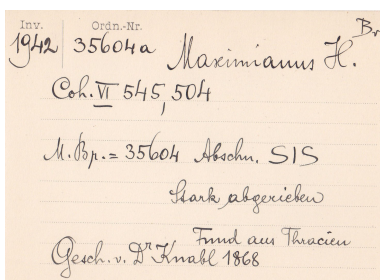 Inv. Ordn.-Nr. Br
1942 35604a Maximianus H.
Coh. VI 545, 504
M. Bp. = 35604 Abschn. SIS
Stark abgerieben
Fund aus Thracien
Gesch. v. Dr Knabl 1868